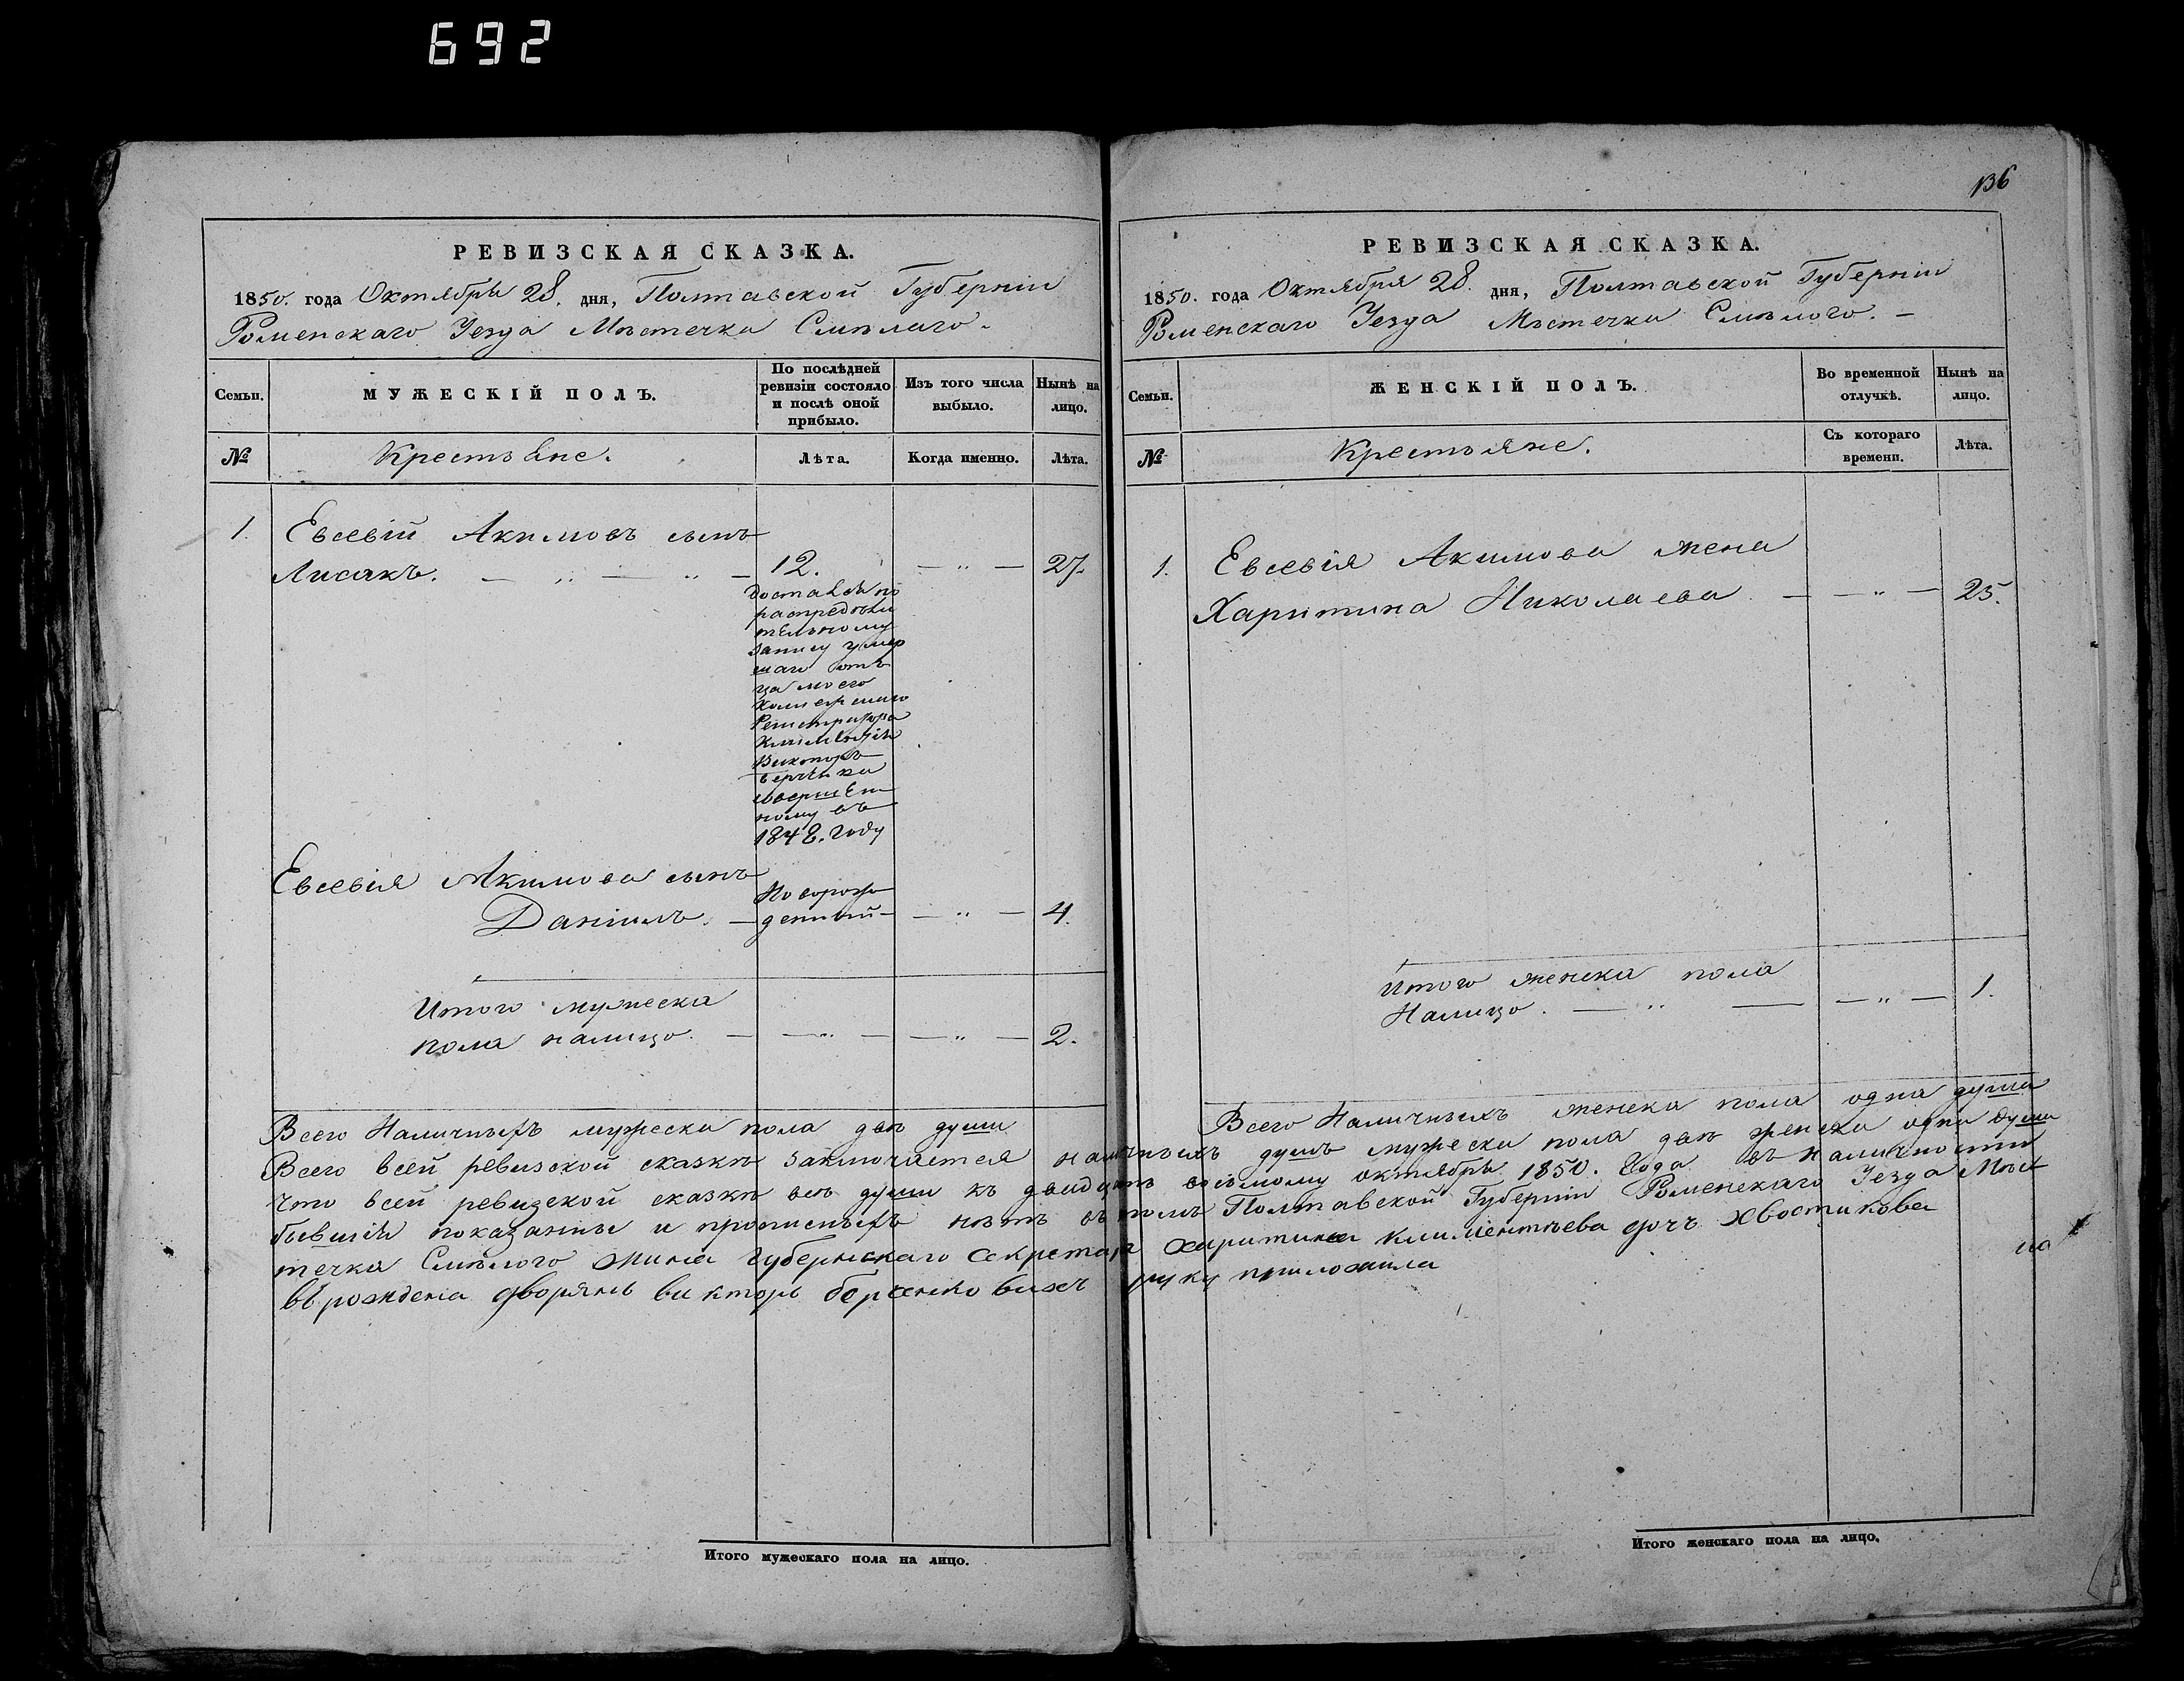 692
136
РЕВИЗСКАЯ СКАЗКА.
1850. года Октября 28. дня, Полтавской Губерніи
Роменскаго Уезда Мѣстечка Смѣлаго.
Семьи.
МУЖЕСКІЙ ПОЛЪ.
По послѣдней
ревизіи состояло
и послѣ оной
прибыло.
Изъ того числа
выбыло.
Нынѣ на
лицо.
№
Крестьяне.
Лѣта.
Когда именно.
Лѣта.
1. Евсевій Акимовъ сынъ
Лисакъ. — „ — „ — 12. — „ — 27.
Достался по
распредѣли
тельному
запису умер
шаго отъ
ца моего
Регистратора
Викторъ
совершен
ному въ
1848. году
Евсевія Акимова сынъ
Даніилъ. — новорож
денный — — „ — 4.
Итого мужеска
пола налицо. — — „ — — „ — 2.
РЕВИЗСКАЯ СКАЗКА.
1850. года Октября 28. дня, Полтавской Губерніи
Роменскаго Уезда Мѣстечка Смѣлого. —
Семьи.
ЖЕНСКІЙ ПОЛЪ.
Во временной
отлучкѣ.
Нынѣ на
лицо.
№
Крестьяне.
Съ котораго
времени.
Лѣта.
1. Евсевія Акимова жена
Харитина Николаева. — — „ — 25.
Итого женска пола
Налицо. — „ — — „ — 1.
Всего Наличныхъ мужеска пола двѣ души
Всего Наличныхъ женска пола одна душа
Всего всей ревизской сказкѣ заключается наличныхъ душъ мужеска пола двѣ женска одна душа
что всей ревизской сказкѣ всѣ души къ двадцать восьмому октября 1850. Года въ наличности
бывшія показаны и прописныхъ нѣтъ въ томъ Полтавской Губерніи Роменскаго Уезда Мѣс
течка Смѣлого жина губернскаго секретаря харитина климентьева дочъ хвостикова
врождена дворянь викторъ руку приложила
Итого мужескаго пола на лицо.
Итого женскаго пола на лицо.